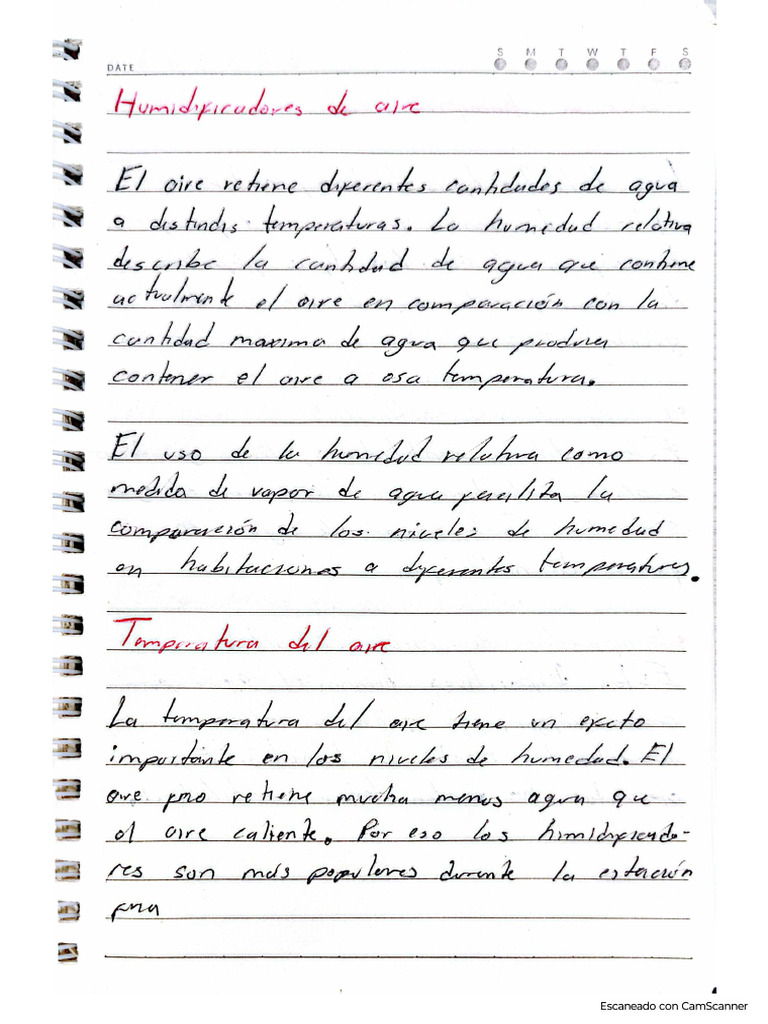 S M T W T F S
DATE
Humidificadores de aire
El aire retiene diferentes cantidades de agua
a distintas temperaturas. La humedad relativa
describe la cantidad de agua que contiene
actualmente el aire en comparación con la
cantidad maxima de agua que
contener el aire a esa temperatura.
El uso de la humedad relativa como
medida de vapor de agua la
comparación de los niveles de humedad
en habitaciones a diferentes temperaturas.
Temperatura del aire
La temperatura del aire tiene un efecto
importante en los niveles de humedad. El
aire frio retiene mucha menos agua que
el aire caliente. Por eso los himidificado-
res son más populares durante la estación
fria
Escaneado con CamScanner